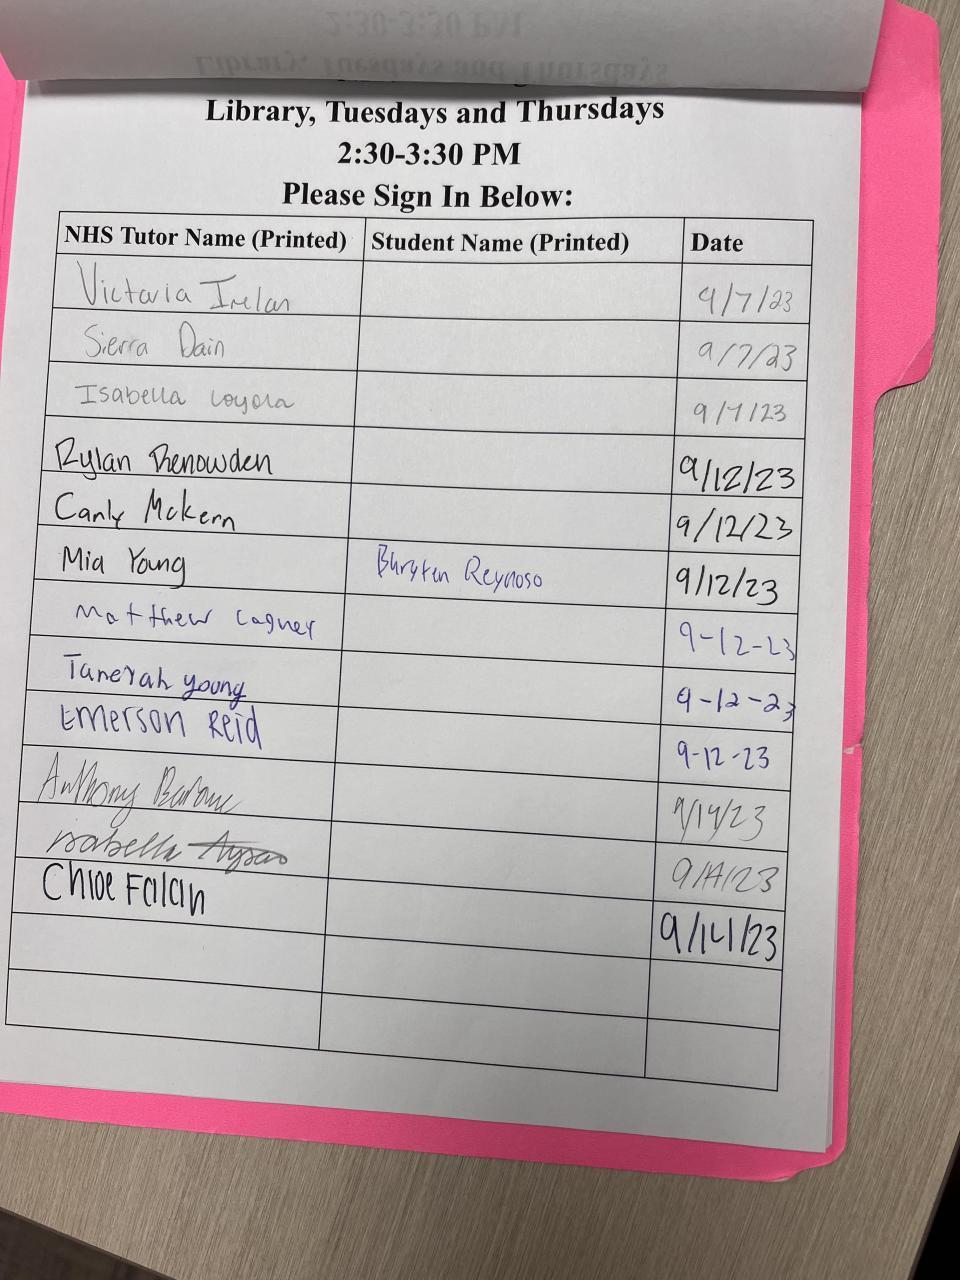 2:30-3:30 PM
Library, Tuesdays and Thursdays
Library, Tuesdays and Thursdays
2:30-3:30 PM
Please Sign In Below:
NHS Tutor Name (Printed) Student Name (Printed) Date
Victoria Irelan 9/7/23
Sierra Dain 9/7/23
Isabella Loyola 9/7/23
Rylan Renowden 9/12/23
McKern 9/12/23
Mia Young Reynoso 9/12/23
Matthew Cagney 9-12-23
Tanerah young 9-12-23
Emerson Reid 9-12-23
Anthony 9/14/23
Isabella 9/14/23
Chloe Falan 9/14/23